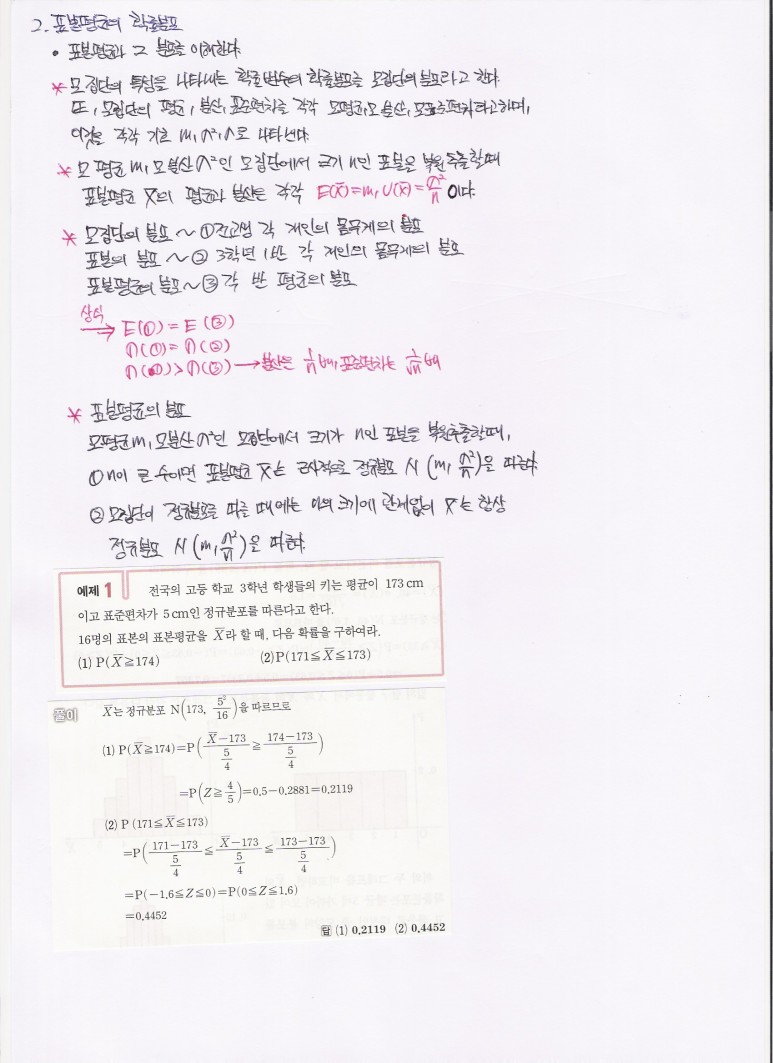 2. 표본평균의 확률분포
• 표본평균과 그 분포를 이해한다.
* 모집단의 특성을 나타내는 확률변수의 확률분포를 모집단의 분포라고 한다.
또, 모집단의 평균, 분산, 표준편차를 각각 모평균, 모분산, 모표준편차라고하며,
이것을 각각 기호 m, σ², σ로 나타낸다.
* 모평균 m, 모분산 σ²인 모집단에서 크기 n인 표본을 복원추출할때
표본평균 X̄의 평균과 분산은 각각 E(X̄)=m, V(X̄)=σ²/n 이다.
* 모집단의 분포 ~ ① 전교생 각 개인의 몸무게의 분포
표본의 분포 ~ ② 3학년 1반 각 개인의 몸무게의 분포
표본평균의 분포 ~ ③ 각 반 평균의 분포
상식
→ E(①) = E(③)
σ(①) = σ(②)
σ(①) > σ(③) → 분산은 1/n배, 표준편차는 1/√n배
* 표본평균의 분포
모평균 m, 모분산 σ²인 모집단에서 크기가 n인 표본을 복원추출할때,
① n이 큰 수이면 표본평균 X̄는 근사적으로 정규분포 N(m, σ²/n)을 따른다.
② 모집단이 정규분포를 따를 때에는 n의 크기에 관계없이 X̄는 항상
정규분포 N(m, σ²/n)을 따른다.
예제 1 전국의 고등 학교 3학년 학생들의 키는 평균이 173 cm
이고 표준편차가 5 cm인 정규분포를 따른다고 한다.
16명의 표본의 표본평균을 X̄라 할 때, 다음 확률을 구하여라.
(1) P(X̄≧174) (2) P(171≦X̄≦173)
풀이 X̄는 정규분포 N(173, 5²/16)을 따르므로
(1) P(X̄≧174)=P((X̄−173)/(5/4) ≧ (174−173)/(5/4))
=P(Z≧4/5)=0.5−0.2881=0.2119
(2) P (171≦X̄≦173)
=P((171−173)/(5/4) ≦ (X̄−173)/(5/4) ≦ (173−173)/(5/4))
=P(−1.6≦Z≦0)=P(0≦Z≦1.6)
=0.4452
답 (1) 0.2119 (2) 0.4452